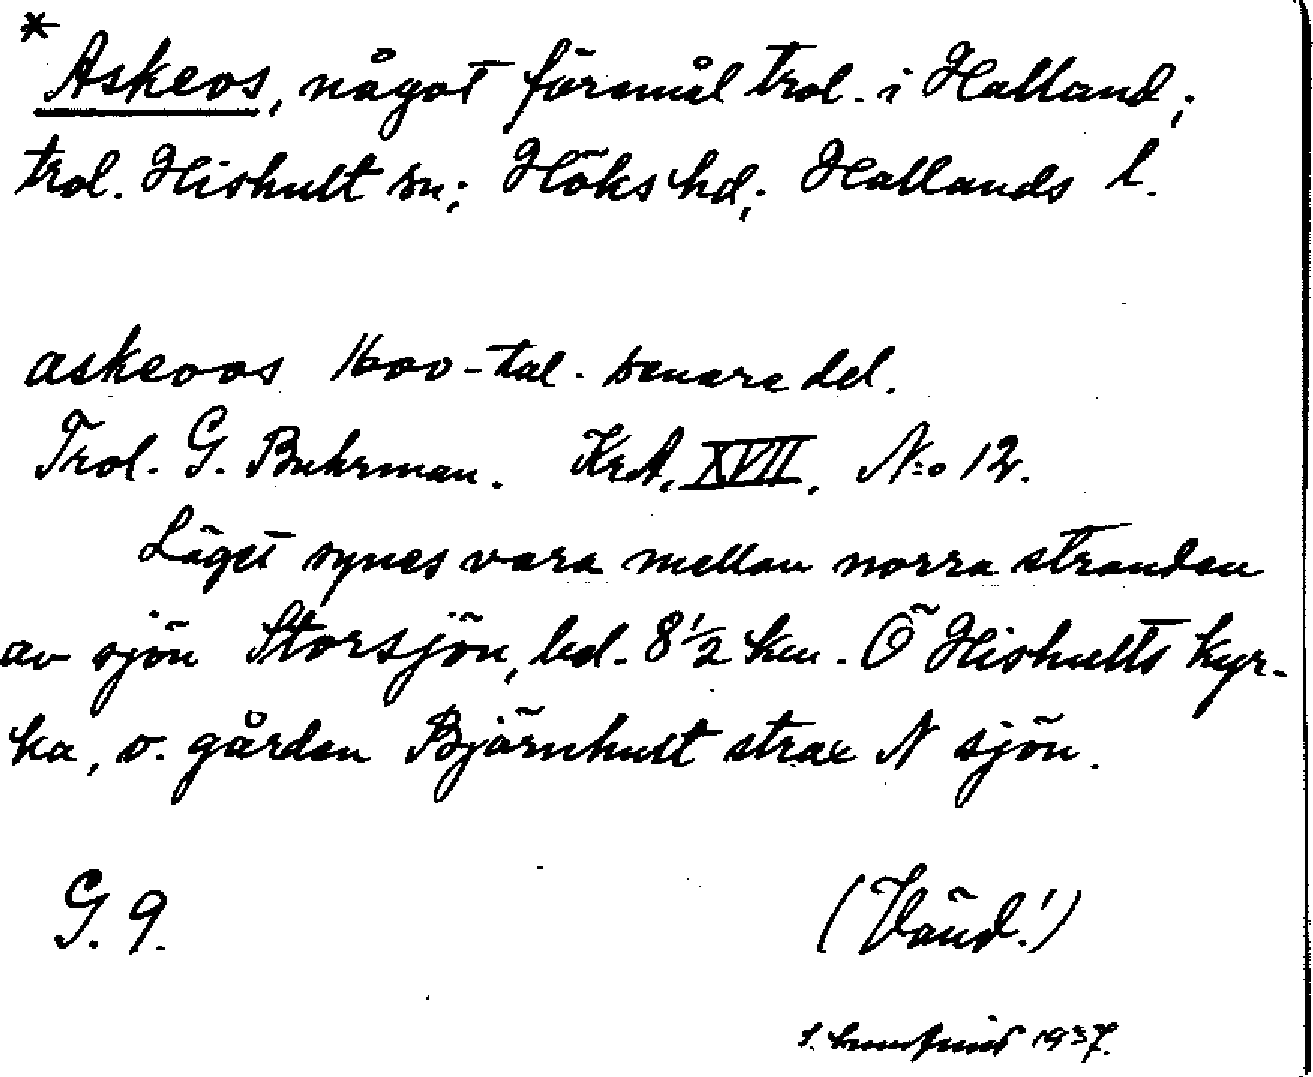 * Askeos, något föremål trol. i Halland;
trol. Hishult sn; Höks hd; Hallands l.
askeoos 1600-tal. senare del.
Trol. G. Buhrman. KrA. XVII. N:o 12.
Läget synes vara mellan norra stranden
av sjön Storsjön, bel. 8 1/2 km. Ö Hishults kyr-
ka, o. gården Björnhult strax N sjön.
G. 9. (Vänd!)
1937.